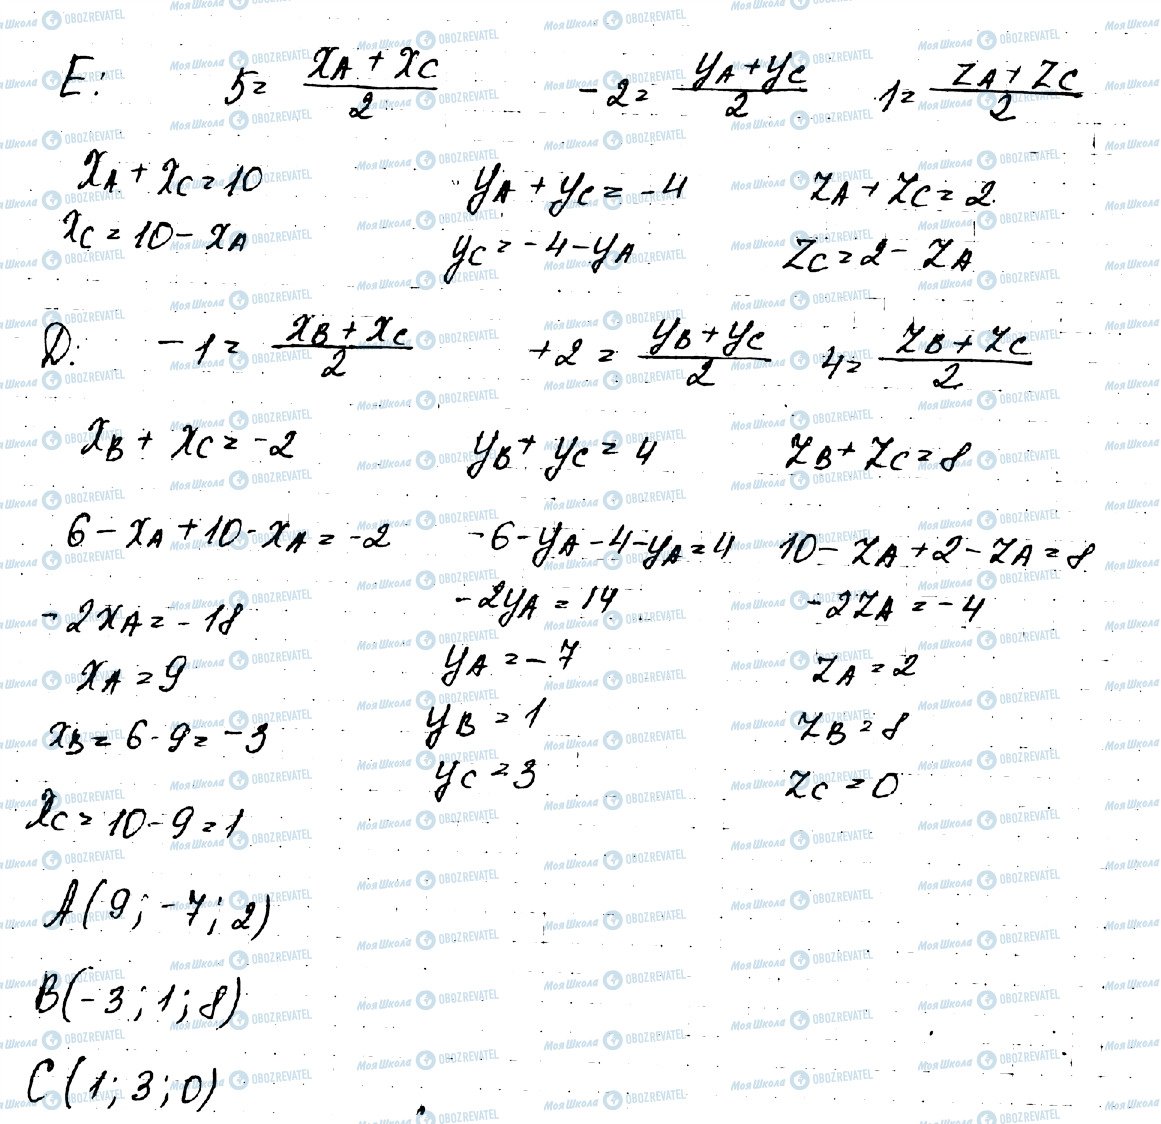 E: 5 = (xA + xC)/2   -2 = (yA + yC)/2   1 = (zA + zC)/2
xA + xC = 10   yA + yC = -4   zA + zC = 2
xC = 10 - xA   yC = -4 - yA   zC = 2 - zA
D: -1 = (xB + xC)/2   +2 = (yB + yC)/2   4 = (zB + zC)/2
xB + xC = -2   yB + yC = 4   zB + zC = 8
6 - xA + 10 - xA = -2   -6 - yA - 4 - yA = 4   10 - zA + 2 - zA = 8
-2xA = -18   -2yA = 14   -2zA = -4
xA = 9   yA = -7   zA = 2
xB = 6 - 9 = -3   yB = 1   zB = 8
xC = 10 - 9 = 1   yC = 3   zC = 0
A(9; -7; 2)
B(-3; 1; 8)
C(1; 3; 0)